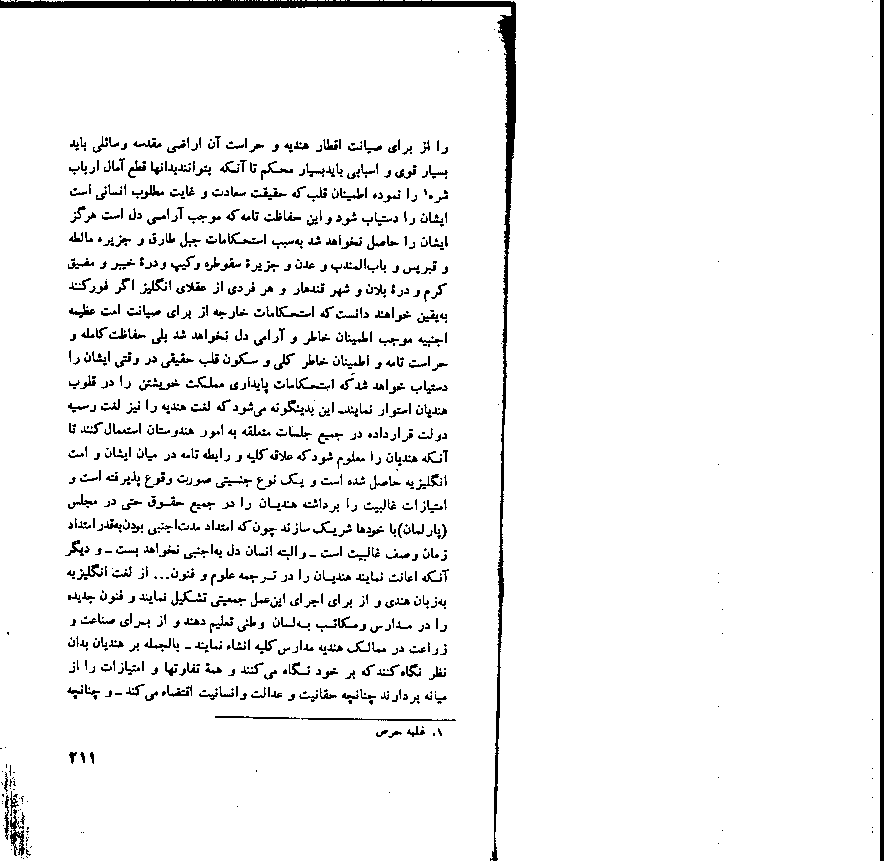 را از برای صیانت اقطار هندیه و حراست آن اراضی مقدسه وسائلی باید
بسیار قوی و اسبابی بایدبسیار محکم تا آنکه بتوانندبدانها قطع آمال ارباب
شره۱ را نموده اطمینان قلب که حقیقت سعادت و غایت مطلوب انسانی است
ایشان را دستیاب شود و این حفاظت تامه که موجب آرامی دل است هرگز
ایشان را حاصل نخواهد شد به‌سبب استحکامات جبل طارق و جزیره مالطه
و قبریس و باب‌المندب و عدن و جزیرهٔ سقوطره و کیپ و درهٔ خیبر و مضیق
کرم و درهٔ بلان و شهر قندهار و هر فردی از عقلای انگلیز اگر فورکنند
به‌یقین خواهند دانست که استحکامات خارجه از برای صیانت امت عظیمه
اجنبیه موجب اطمینان خاطر و آرامی دل نخواهد شد بلی حفاظت کامله و
حراست تامه و اطمینان خاطر کلی و سکون قلب حقیقی در وقتی ایشان را
دستیاب خواهد شد که استحکامات پایداری مملکت خویشتن را در قلوب
هندیان استوار نمایند. این بدینگونه می‌شود که لغت هندیه را نیز لغت رسمیه
دولت قرارداده در جمیع جلسات متعلقه به امور هندوستان استعمال کنند تا
آنکه هندیان را معلوم شود که علاقه کلیه و رابطه تامه در میان ایشان و امت
انگلیزیه حاصل شده است و یک نوع جنسیتی صورت وقوع پذیرفته است و
امتیازات غالبیت را برداشته هندیان را در جمیع حقوق حتی در مجلس
(پارلمان) با خودها شریک سازند چون که امتداد مدت اجنبی بودن به‌قدر امتداد
زمان وصف غالبیت است ــ والبته انسان دل به‌اجنبی نخواهد بست ــ و دیگر
آنکه اعانت نمایند هندیان را در ترجمه علوم و فنون... از لغت انگلیزیه
به‌زبان هندی و از برای اجرای این‌عمل جمعیتی تشکیل نمایند و فنون جدیده
را در مدارس ومکاتب به‌لسان وطنی تعلیم دهند و از برای صناعت و
زراعت در ممالک هندیه مدارس کلیه انشاء نمایند ــ بالجمله بر هندیان بدان
نظر نگاه کنند که بر خود نگاه می‌کنند و همهٔ تفاوتها و امتیازات را از
میانه بردارند چنانچه حقانیت و عدالت و انسانیت اقتضاء می‌کند ــ و چنانچه
۱. غلبه حرص
۲۱۱